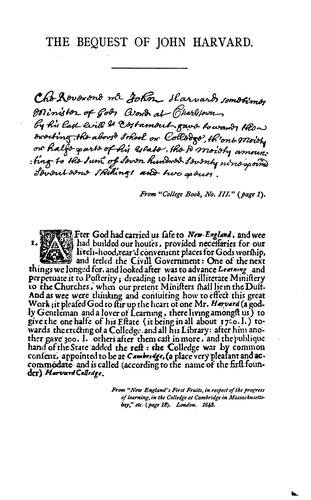 THE BEQUEST OF JOHN HARVARD.
The Reverend mr John Harvard sometimes
Minister of Gods Word at Charlstown
by his last will & Testament gave towards the
erecting the above School or Colledge, th' one Moiety
or halfe parte of his Estate, the sd Moiety amoun-
ting to the sum of Seven hundred seventy nine pound
seventeene shillings and two pence.
From "College Book, No. III." (page 1).
1. AFter God had carried us safe to New-England, and wee
had builded our houses, provided necessaries for our
liveli-hood, rear'd convenient places for Gods worship,
and setled the Civill Government: One of the next
things we longed for, and looked after was to advance Learning and
perpetuate it to Posterity; dreading to leave an illiterate Ministery
to the Churches, when our present Ministers shall lie in the Dust.
And as wee were thinking and consulting how to effect this great
Work; it pleased God to stir up the heart of one Mr. Harvard (a god-
ly Gentleman and a lover of Learning, there living amongst us) to
give the one halfe of his Estate (it being in all about 1700. l.) to-
wards the erecting of a Colledge, and all his Library: after him ano-
ther gave 300. l. others after them cast in more, and the publique
hand of the State added the rest: the Colledge was by common
consent, appointed to be at Cambridge, (a place very pleasant and ac-
commodate and is called (according to the name of the first foun-
der) Harvard Colledge.
From "New England's First Fruits, in respect of the progress
of learning, in the College at Cambridge in Massachusetts-
bay," etc. (page 12). London. 1643.